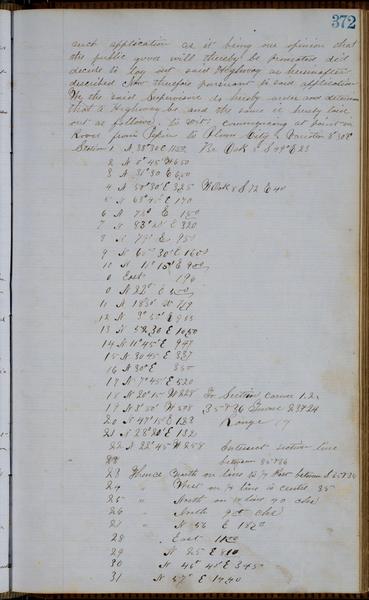 372
such application as it being our opinion that
the public good will thereby be promoted did
decide to lay out said Highway as hereinafter
described Now therefore pursuant to said application
We the said Supervisors do hereby order and determine
that a Highway be and the same is hereby laid
out as follows, to wit: commencing at point in
Road from Pepin to Plum City
Station 1 N 38°30 E 1100 Br Oak 8 S 49° E 23
2 N 0°45' W 650
3 N 31°30 E 650
4 N 58°30' E 325 W Oak 8 S 12 E 40
5 N 68°45' E 170
6 N 78° E 150
7 N 83°20' E 320
8 N 79° E 950
9 N 60°30' E 1600
10 N 11°15' E 900
0 East 190
0 N 22° E
11 N 18°30' W 749
12 N 3°50' E 905
13 N 58 30 E 1050
14 N 11°45' E 947
15 N 30 45 E 337
16 N 30° E 350
17 N 7°45' E 520
18 N 20°15' W 228 To Section Corner 1.2.
19 N 3°50' W 508 35 & 36 Towns 23 & 24
20 N 47°15 E 123 Range 17
21 N 28°20' E 132
22 N 22°45' W 258 Intersect section line
between 35 & 36
23 Thence North on line to 1/4 Post between S 35 & 36
24 " West on 1/4 line to center 35
25 " North on 1/4 line 40 chs
26 " North 40 chs
27 " N 56 E 1820
28 " East 1100
29 " N 25 E 810
30 " N 46°45' E 345
31 N 57° E 1440